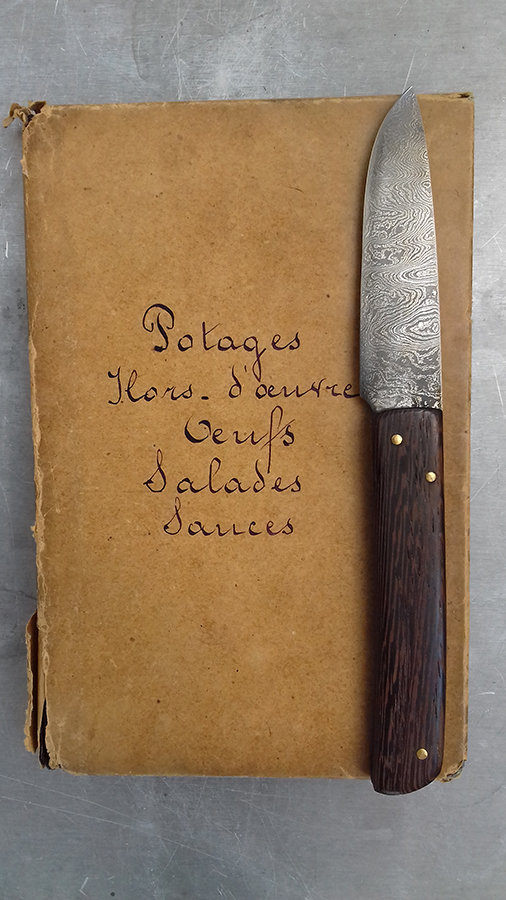 Potages
Hors-d'œuvre
Oeufs
Salades
Sauces